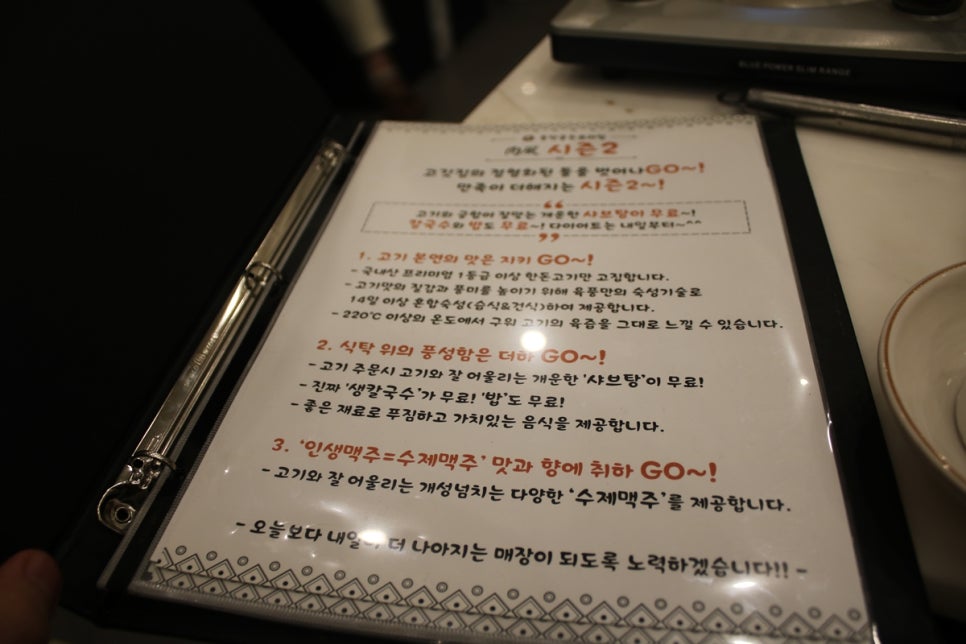 BLUE POWER SLIM RANGE
肉風 시즌2
고깃집의 정형화된 틀을 벗어나GO~!
만족이 더해지는 시즌2~!
“
고기와 궁합이 잘맞는 개운한 샤브탕이 무료~!
칼국수와 밥도 무료~! 다이어트는 내일부터~^^
”
1. 고기 본연의 맛은 지키 GO~!
- 국내산 프리미엄 1등급 이상 한돈고기만 고집합니다.
- 고기맛의 질감과 풍미를 높이기 위해 육풍만의 숙성기술로
14일 이상 혼합숙성(습식&건식)하여 제공합니다.
- 220℃ 이상의 온도에서 구워 고기의 육즙을 그대로 느낄 수 있습니다.
2. 식탁 위의 풍성함은 더하 GO~!
- 고기 주문시 고기와 잘 어울리는 개운한 '샤브탕'이 무료!
- 진짜 '생칼국수'가 무료! '밥'도 무료!
- 좋은 재료로 푸짐하고 가치있는 음식을 제공합니다.
3. '인생맥주=수제맥주' 맛과 향에 취하 GO~!
- 고기와 잘 어울리는 개성넘치는 다양한 '수제맥주'를 제공합니다.
- 오늘보다 내일이 더 나아지는 매장이 되도록 노력하겠습니다!! -